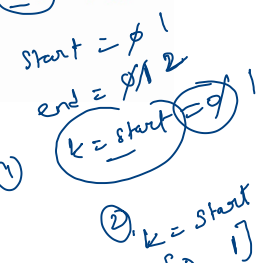 start = 0 1
end = 0 1 2
k = start = 0 1
4)
②. k = start
1]